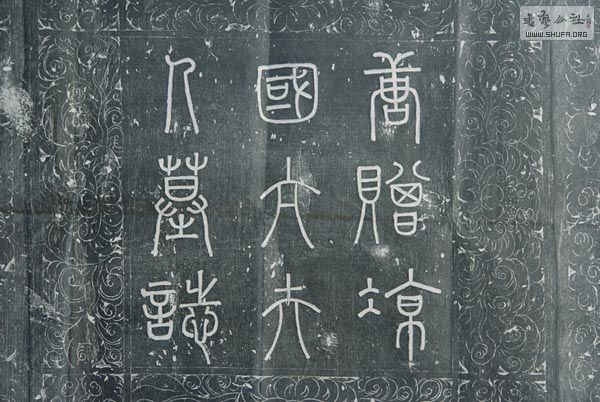 唐贈涼
國太夫
人墓誌
書藝公社
WWW.SHUFA.ORG